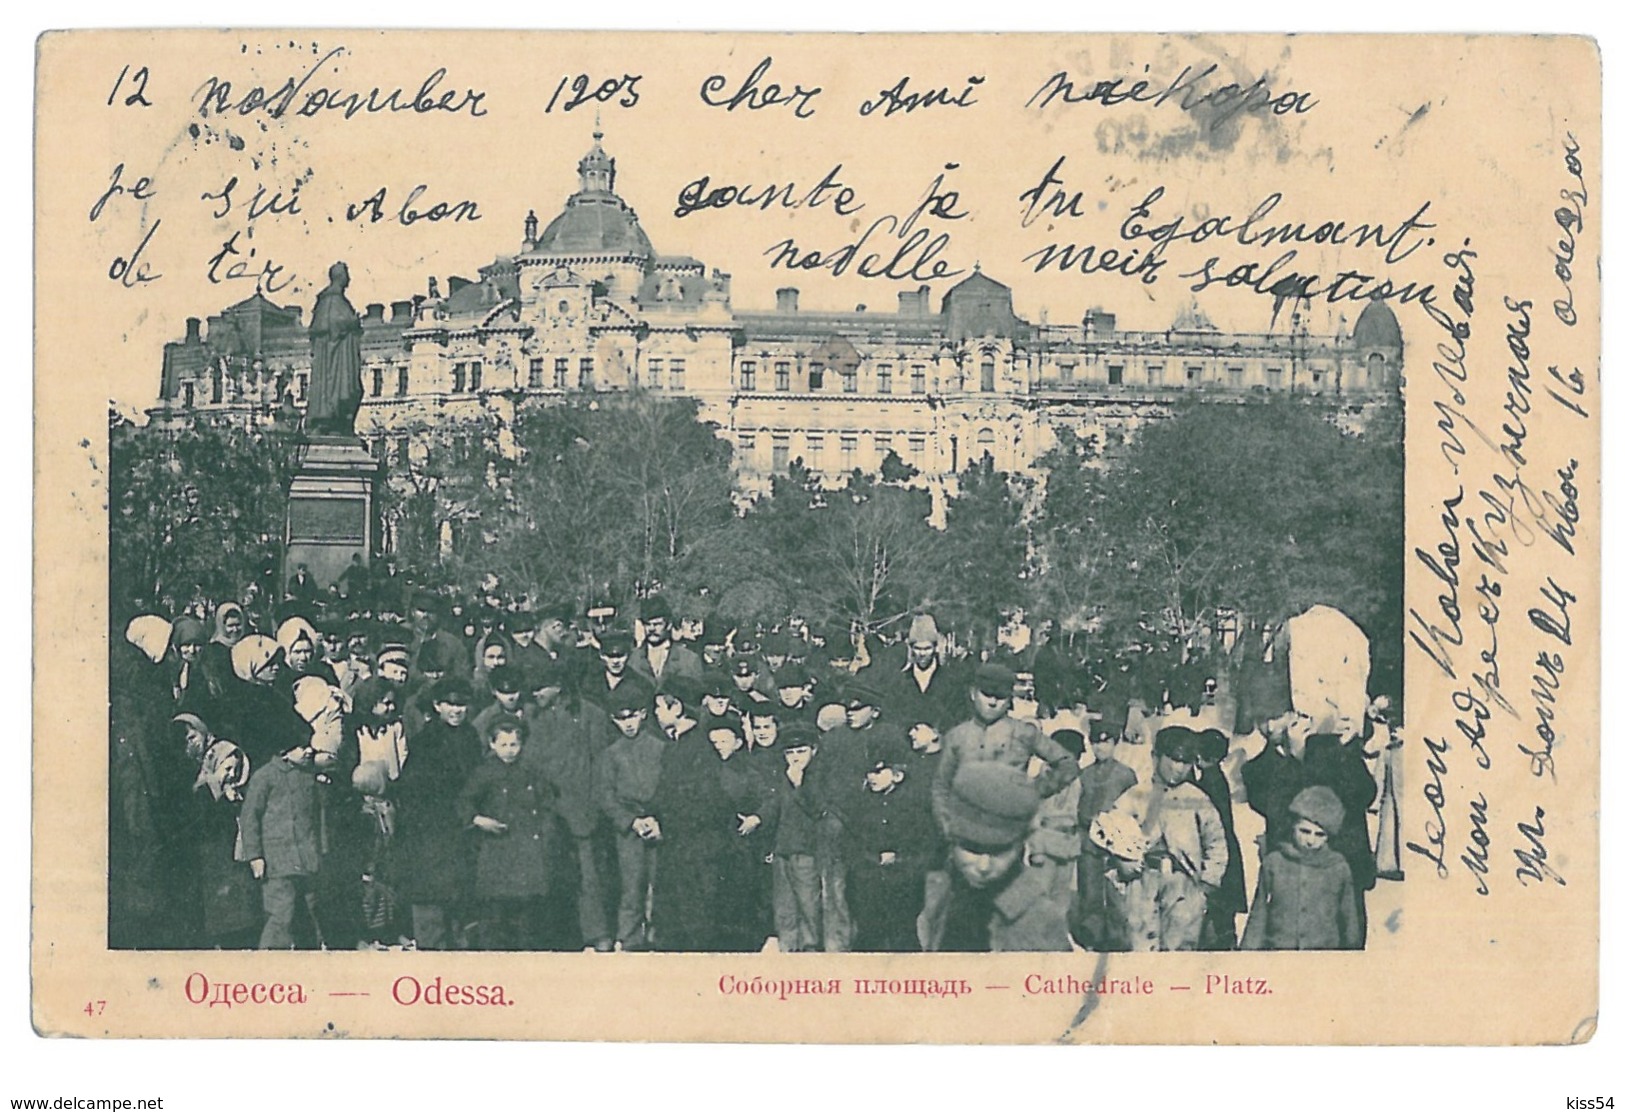 12 novamber 1903 cher Ami
je sui Abon sante je tu Egalmant.
de ter novelle meir salution
Leon Kohen
Мой Адрес Кузнечная
ул. Домъ 24 кв. 16 odessa
47
Одесса — Odessa.
Соборная площадь — Cathedrale — Platz.
www.delcampe.net
kiss54